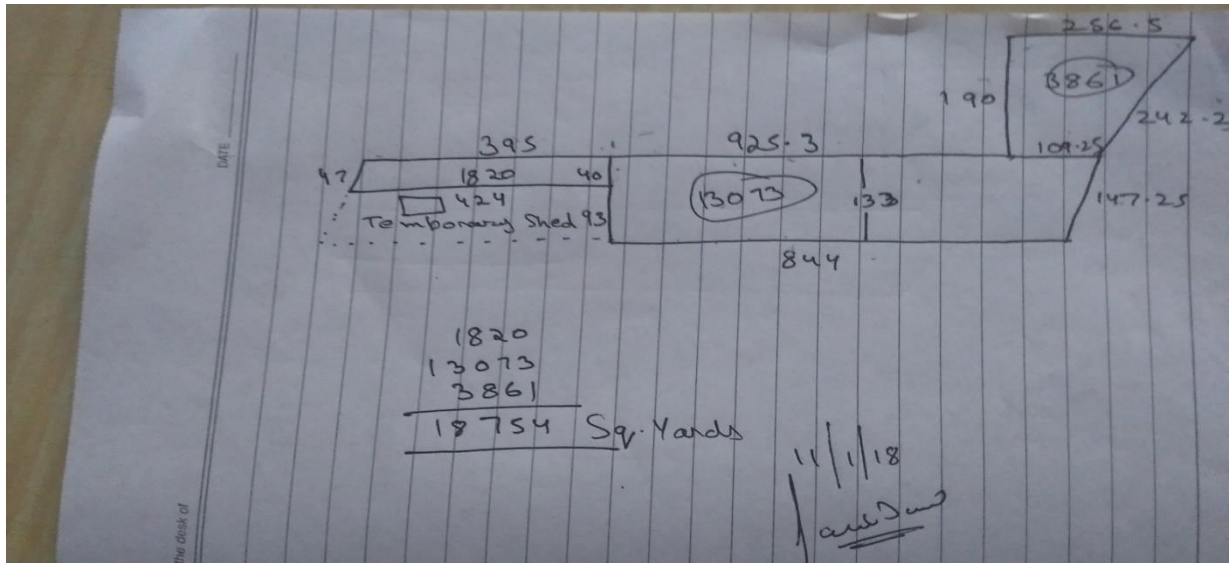 256.5
3861
190
242.2
109.25
395
925.3
47
1820
40
13073
133
147.25
424
Temborary Shed 93
844
1820
13073
3861
18754 Sq. Yards
11/1/18
DATE
the desk of